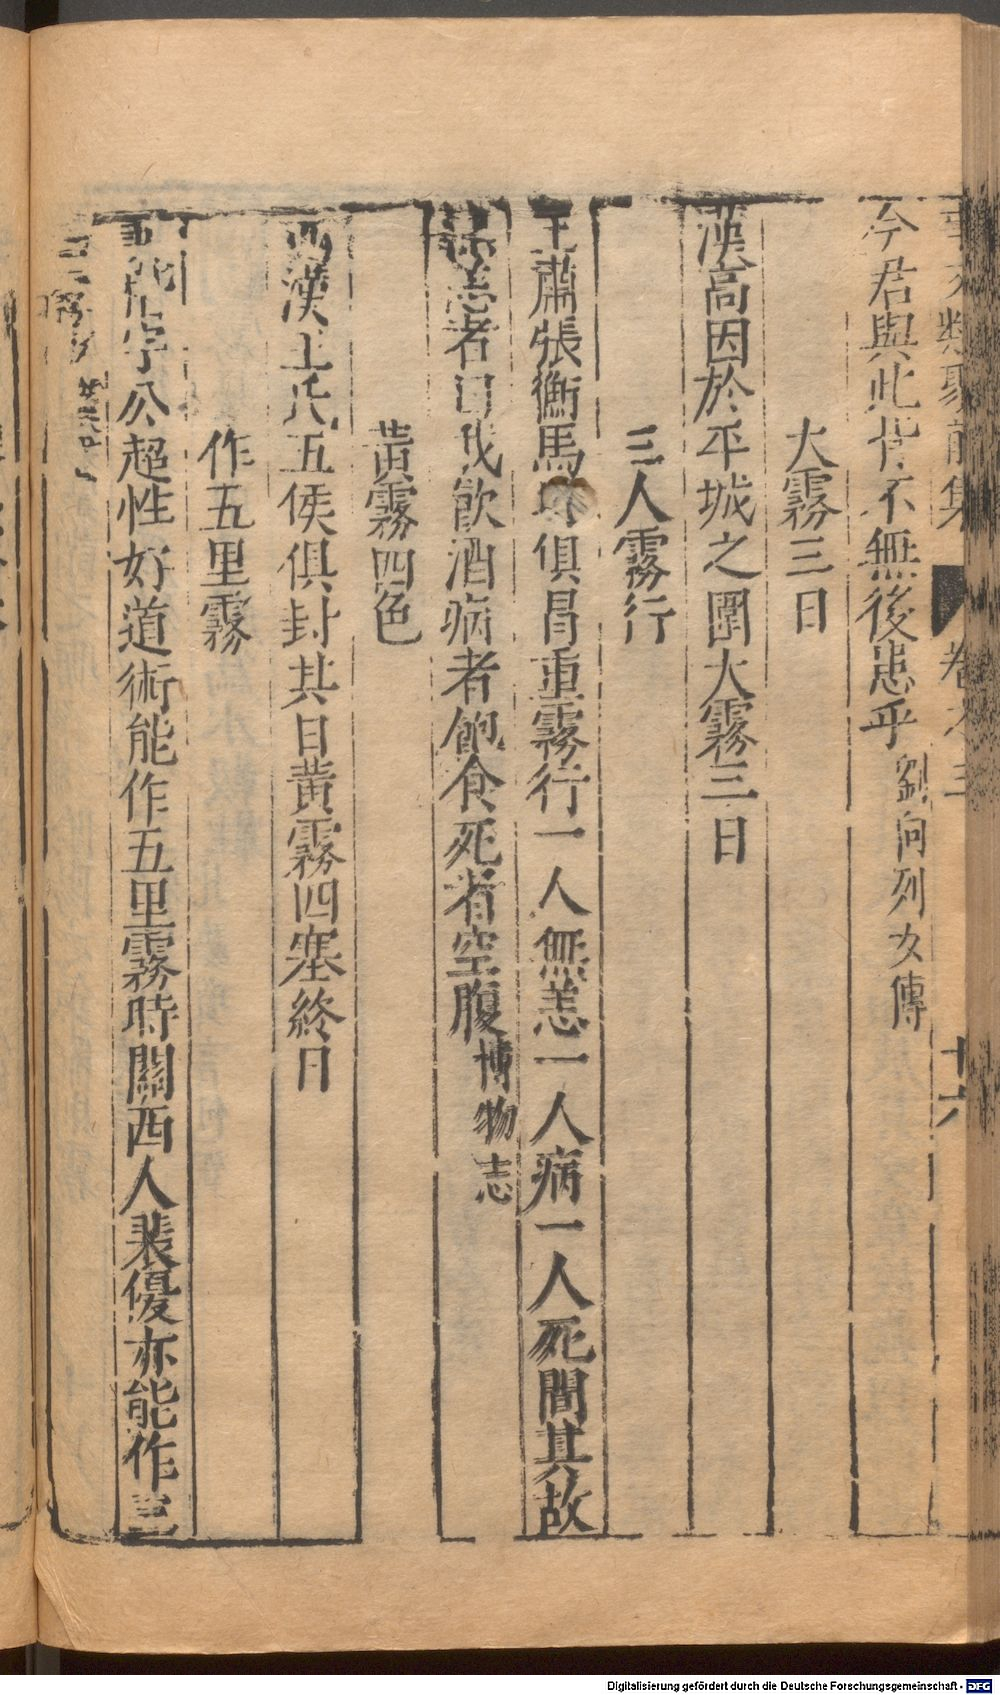 事文類聚前集 卷之三 十六
今君與此背不無後患乎劉向列女傳
大霧三日
漢高因於平城之圍大霧三日
三人霧行
王肅張衡馬均俱昌重霧行一人無恙一人病一人死間其故
無恙者曰我飲酒病者飽食死者空腹博物志
黃霧四色
西漢王氏五侯俱封其日黃霧四塞終日
作五里霧
字公超性好道術能作五里霧時關西人裴優亦能作三
里霧
Digitalisierung gefördert durch die Deutsche Forschungsgemeinschaft - DFG